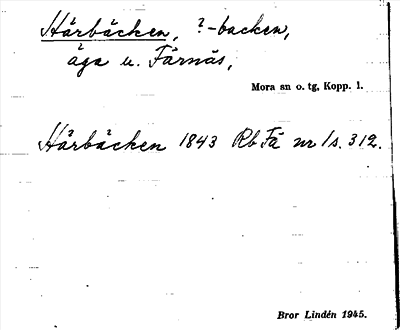 Hårbäcken, ?-backen,
äga u. Färnäs,
Mora sn o. tg, Kopp. l.
Hårbäcken 1843 Rb Fä nr 1 s. 312.
Bror Lindén 1945.